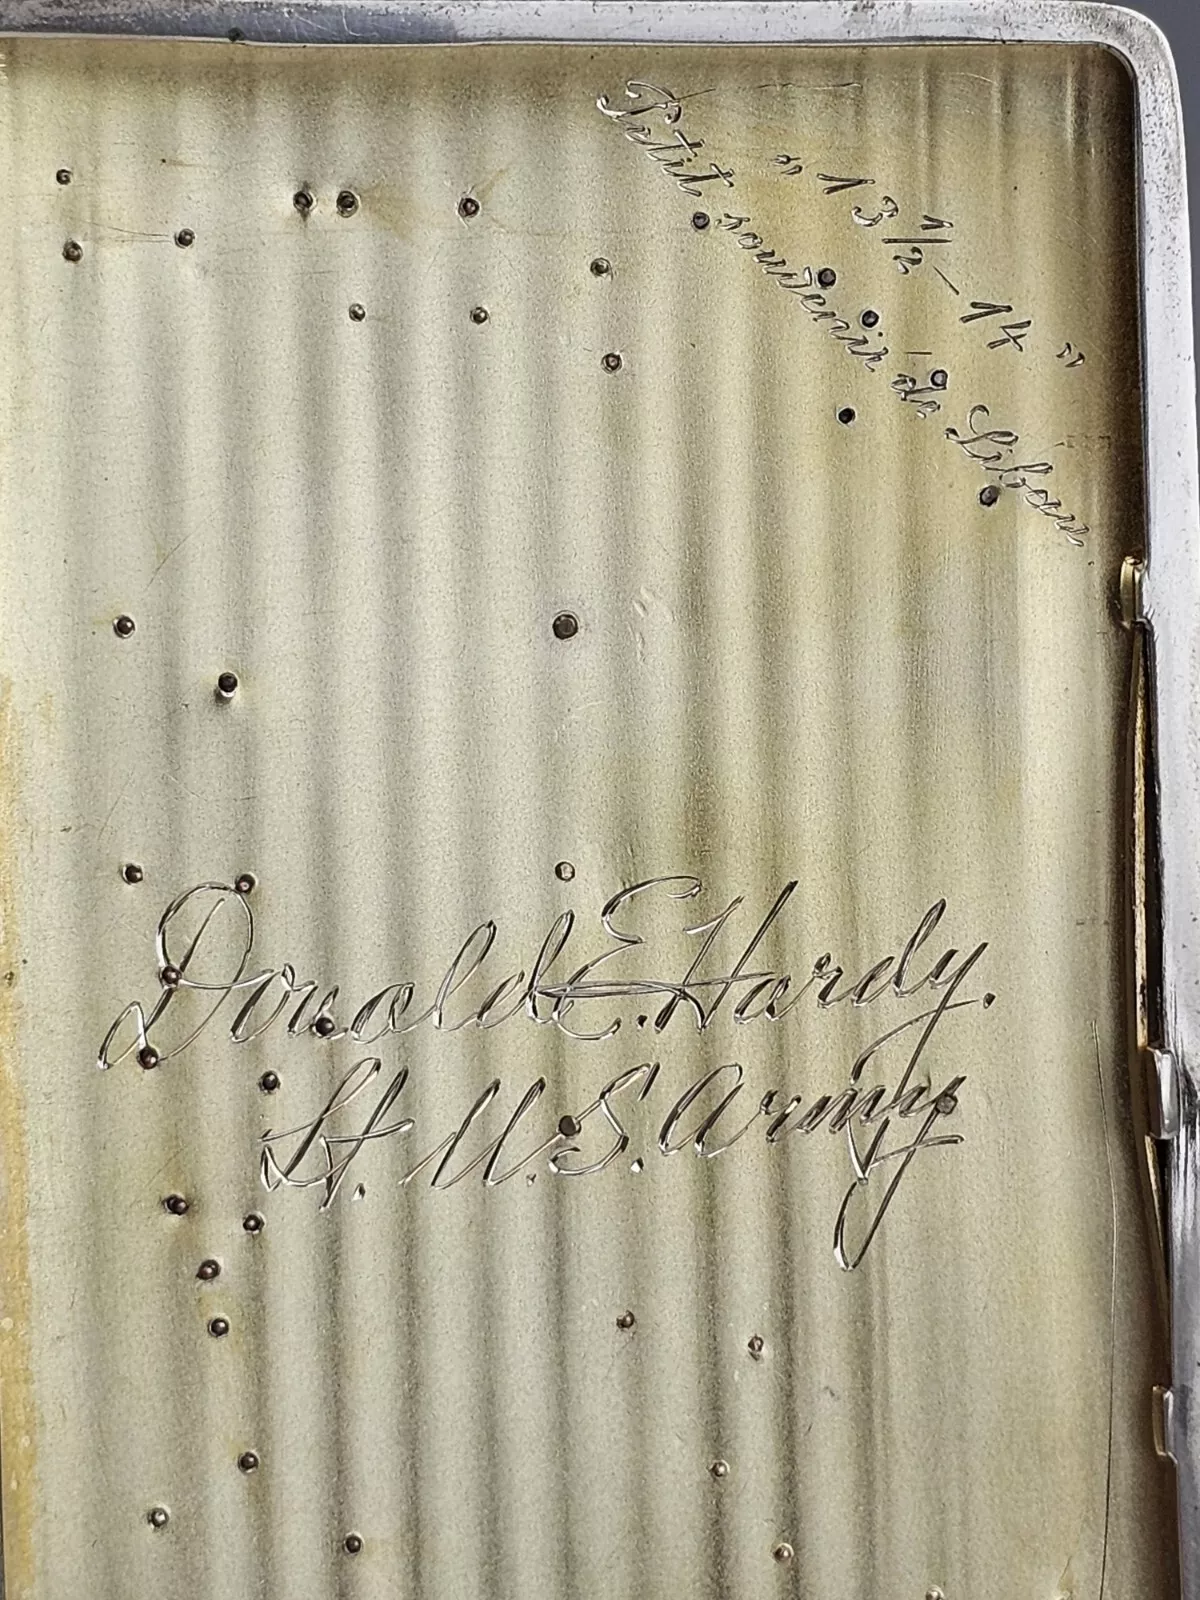 Petit souvenir de Liban
„ 13 1/2 - 14 "
Donald E. Hardy.
Lt. U.S. Army